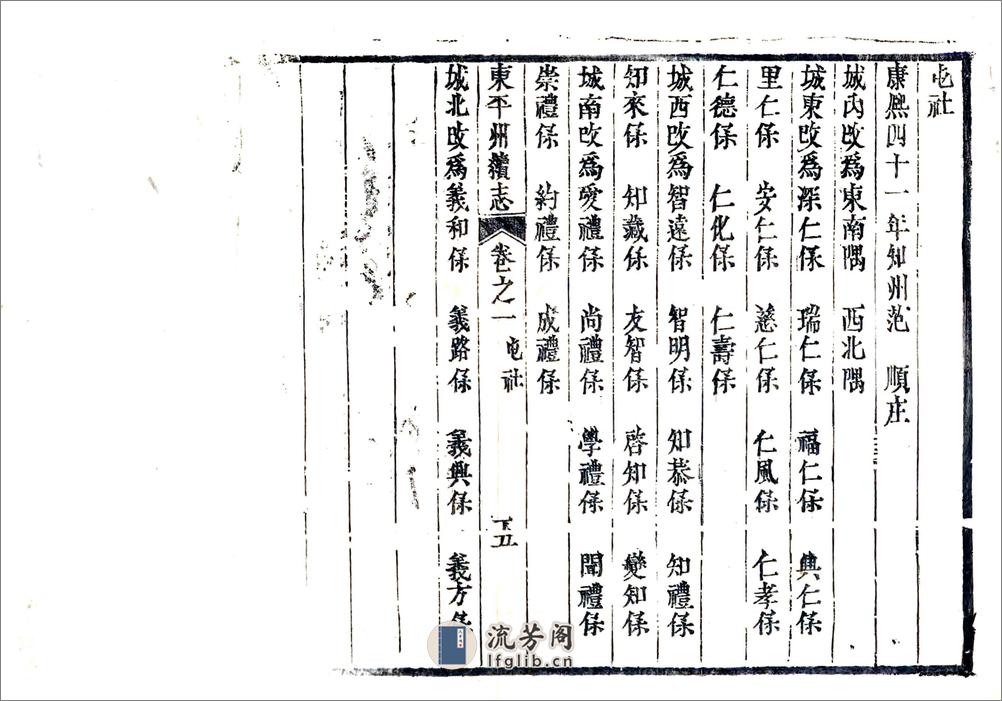 屯社
康熙四十一年知州范 順庄
城內改爲東南隅 西北隅
城東改爲深仁保 瑞仁保 福仁保 興仁保
里仁保 安仁保 慈仁保 仁風保 仁孝保
仁德保 仁化保 仁壽保
城西改爲智遠保 智明保 知恭保 知禮保
知來保 知藏保 友智保 啓知保 變知保
城南改爲愛禮保 尚禮保 學禮保 聞禮保
崇禮保 約禮保 成禮保
東平州續志 卷之一 屯社 五
城北改爲義和保 義路保 義興保 義方保
流芳阁
lfglib.cn